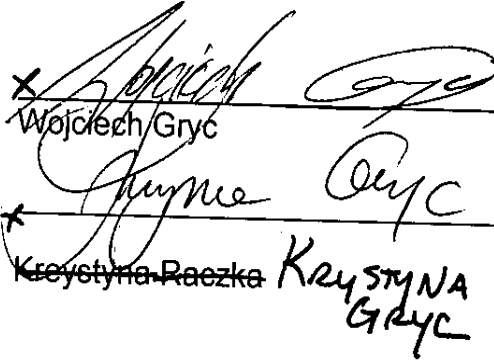 x Wojciech Gryc
Wojciech Gryc
x Krystyna Gryc
Kreystyna Raczka KRYSTYNA
GRYC